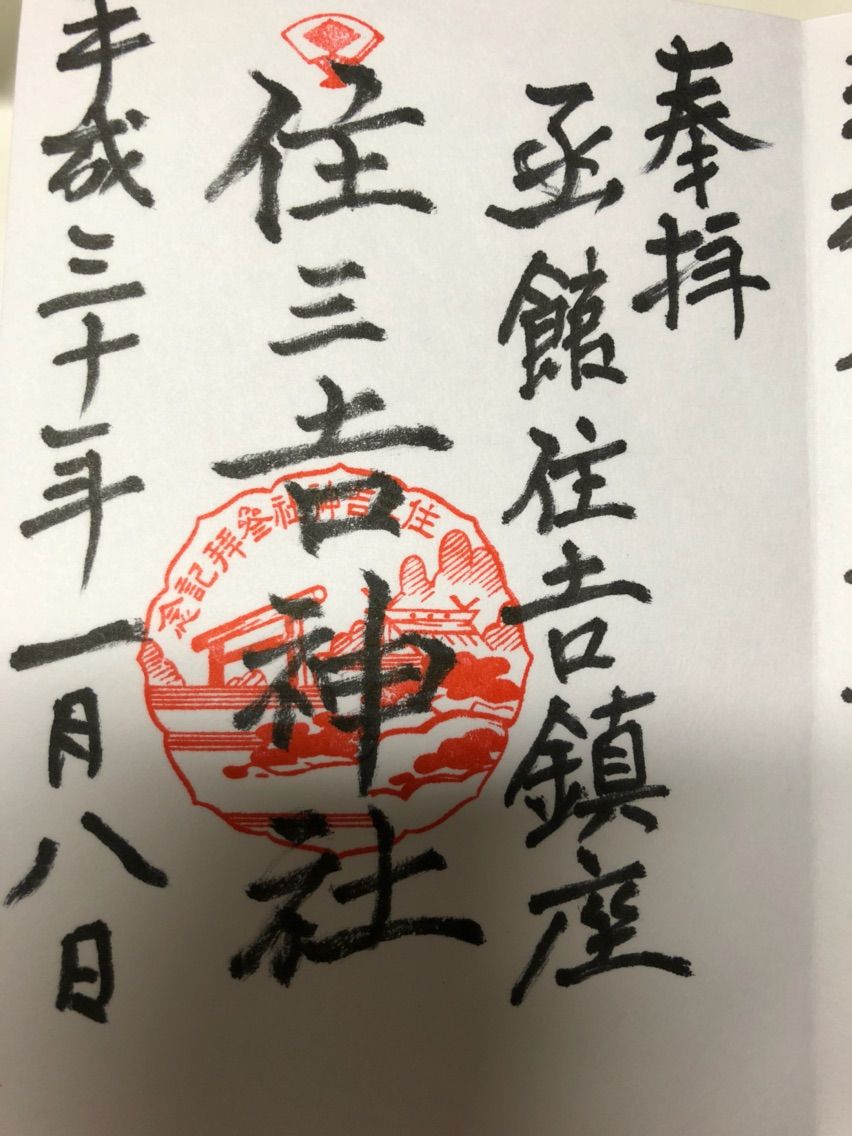 奉拝
函館住吉鎮座
住三吉神社
住三吉神社参拝記念
平成三十年一月八日